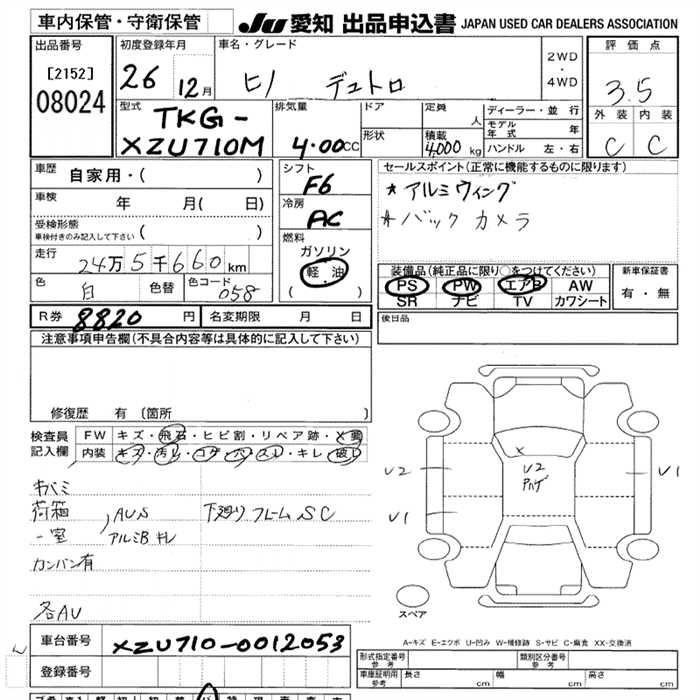 車内保管・守衛保管
JU 愛知 出品申込書 JAPAN USED CAR DEALERS ASSOCIATION
出品番号
[2152]
08024
初度登録年月
26 12月
車名・グレード
ヒノ デュトロ
2WD
・
4WD
評価点
3.5
外装 内装
C C
型式
TKG-
XZU710M
排気量
4.00CC
ドア
形状
定員
人
積載
4,000 kg
ディーラー・並行
モデル年式 年
ハンドル 左・右
車歴
自家用・( )
車検
年 月( 日)
受検形態
車検付きのみ記入して下さい ( )
走行
24万5千660km
色
白
色替
色コード
058
シフト
F6
冷房
AC
燃料
ガソリン
軽油
( )
セールスポイント(正常に機能するものに限ります)
* アルミウィング
* バック カメラ
装備品(純正品に限り○をつけてください)
PS PW エアB AW
SR ナビ TV カワシート
新車保証書
有・無
R券 8820 円
名変期限 月 日
後日品
注意事項申告欄(不具合内容等は具体的に記入して下さい)
修復歴 有 〔箇所 〕
検査員
記入欄
FW キズ・飛石・ヒビ割・リペア跡・X要
内装 キズ・汚レ・コゲ・穴・スレ・キレ・破レ
キバミ
荷箱
一室
AUS
アルミB キレ
下廻り フレーム SC
カンバン有
各AU
U2
U1
U2
U1
スペア
A-キズ E-エクボ U-凹み W-補修跡 S-サビ C-腐食 XX-交換済
車台番号 XZU710-0012053
登録番号
形式指定番号
参考
類別区分番号
参考
車庫証明用
参考
長さ cm
幅 cm
高さ cm